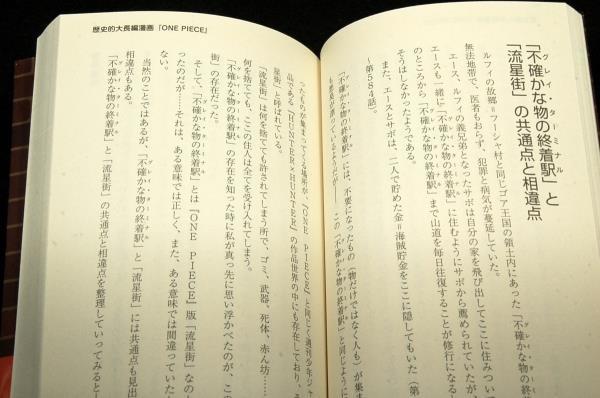 「不確かな物の終着駅」と
グレイ・ターミナル
「流星街」の共通点と相違点
ルフィの故郷=フーシャ村と同じゴア王国の領土内にあった「不確かな物の終
無法地帯で、医者もおらず、犯罪と病気が蔓延していた。
エース、ルフィの義兄弟となったサボは自分の家を飛び出してここに住みつい
エースも一緒に「不確かな物の終着駅」に住むようにサボから薦められていたが
のところから「不確かな物の終着駅」まで山道を毎日往復することが修行になる
そうはしなかったようである。
また、エースとサボは、二人で貯めた金=海賊貯金をここに隠してもいた（第
〜第５８４話）。
「不確かな物の終着駅」には、不要になったもの（物だけではなく人も）が集ま
この「不確かな物の終着駅」と同じように
歴史的大長編漫画『ONE PIECE』
ったものが集まってくる場所が、『ＯＮＥ ＰＩＥＣＥ』と同じく週刊少年ジャ
品である『ＨＵＮＴＥＲ×ＨＵＮＴＥＲ』の作品世界の中にも存在しており、そ
星街」と呼ばれている。
「流星街」は何を捨てても許されてしまう所で、ゴミ、武器、死体、赤ん坊……
何を捨てても、ここの住人は全てを受け入れてしまう。
「不確かな物の終着駅」の存在を知った時に私が真っ先に思い浮かべたのが、この
街」の存在だった。
そして、「不確かな物の終着駅」とは『ＯＮＥ ＰＩＥＣＥ』版「流星街」なの
ったのだが……それは、ある意味では正しく、また、ある意味では間違っていた
当然のことではあるが、「不確かな物の終着駅」と「流星街」には共通点も見出
相違点もある。
「不確かな物の終着駅」と「流星街」の共通点と相違点を整理していってみると